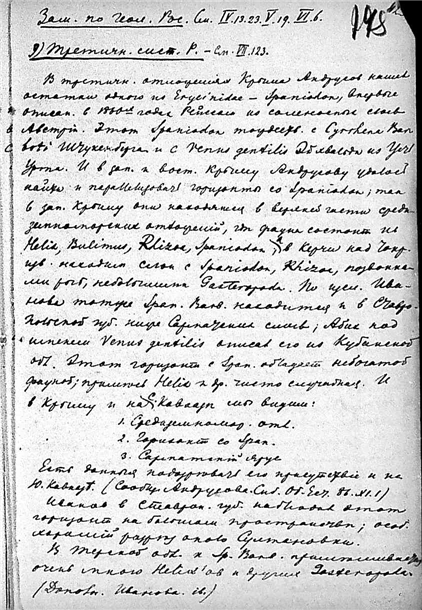 Зам. по геол. Рос. См. IV.13.23. V.19. VI.6.
9) Третичн. сист. Р. – См. VII.123.
В третичн. отложениях Крыма Андрусов нашел
остатки одного из Erycinidae – Spaniodon, впервые
описан. в 1860х годах Рейссом из соленосных слоев
Австрiи. Этот Spaniodon тождеств. с Cytherea Bar
и с Venus gentilis Эйхвальда из
Урта. И в зап. и вост. Крыму Андрусову удалось
найти и горизонты со Spaniodon; так
в зап. Крыму они находятся в верхней части среди-
земноморских отложенiй, где фауна состоит из
Helix, Bulimus, Spaniodon; в Керчи над Чокр.
изв. находим слои с Spaniodon, позвонка-
ми рыб, небольшими Gasteropoda. По иссл. Ива-
нова тот же Span. Barb. находится и в Ставро-
польской губ. ниже Сарматских слоев; Абих под
именем Venus gentilis описал его из Кубанской
обл. Этот горизонт с Span. обладает небогатой
фауной; примесь Helix и др. чисто случайная. И
в Крыму и на С. Кавказе мы видим:
1. Средиземномор. отл.
2. Горизонт со Span.
3. Сарматский ярус
Есть данныя его присутствiе и на
Ю. Кавказе. (Сообщ. Андрусова. Спб. Об. Ест. XI.1)
Иванов в Ставроп. губ. наблюдал этот
горизонт на большом пространстве; особ.
хороший разрез около Султановки.
В Терской обл. к Sp. Barb. примешивается
очень много Helix'ов и других Gasteropoda.
(Дополн. Иванова. ib.)